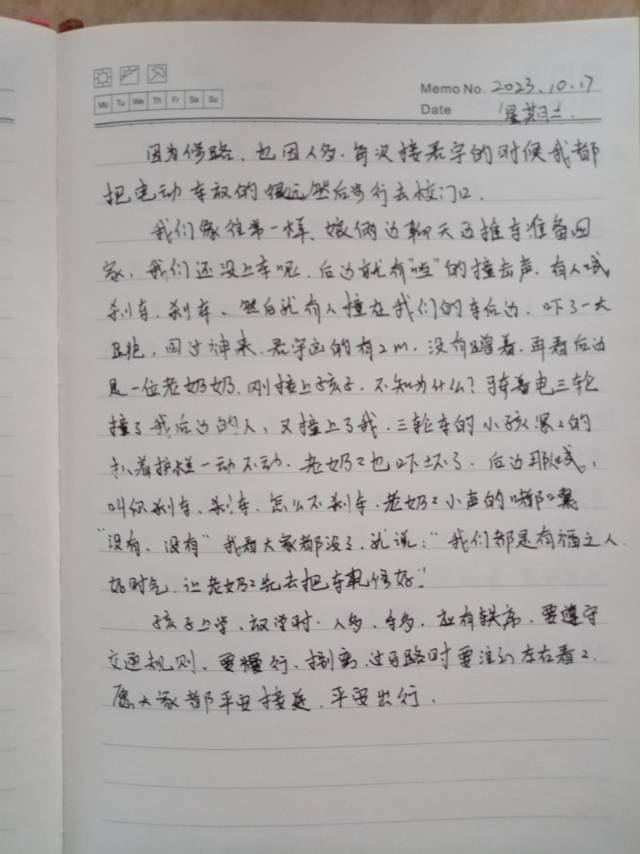 Memo No. 2023.10.17
Mo Tu We Th Fr Sa Su
Date 星期二.
因为修路、也因人多.每次接若宇的时候我都
把电动车放的很远然后步行去校门口.
我们像往常一样、娘俩边聊天边推车准备回
家.我们还没上车呢.后边就有"啦"的撞击声.有人喊
刹车.刹车、然后就有人撞在我们的车后边.吓了一大
跳.回过神来.若宇离的有2m.没有蹭着.再看后边
是一位老奶奶.刚接上孩子.不知为什么?骑着电三轮
撞了我后边的人,又撞上了我.三轮车的小孩紧紧的
扒着护栏一动不动.老奶奶也吓坏了.后边那人喊.
叫你刹车、刹车.怎么不刹车.老奶奶小声的嘟囔
"没有、没有"我看大家都没事.就说:"我们都是有福之人.
好时气.让老奶奶先去把车轧修好."
孩子上学、放学时.人多.车多.应有秩序.要遵守
交通规则.要慢行.过马路时要注意左右看看.
愿大家都平安接送.平安出行.